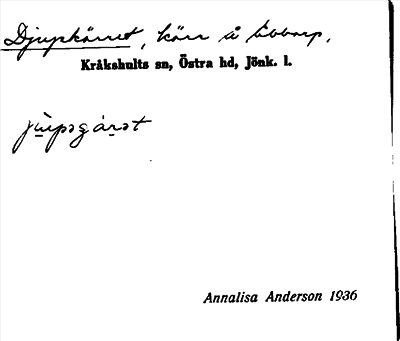 Djupkärret, kärr å Ebbarp.
Kråkshults sn, Östra hd, Jönk. l.
Annalisa Anderson 1936